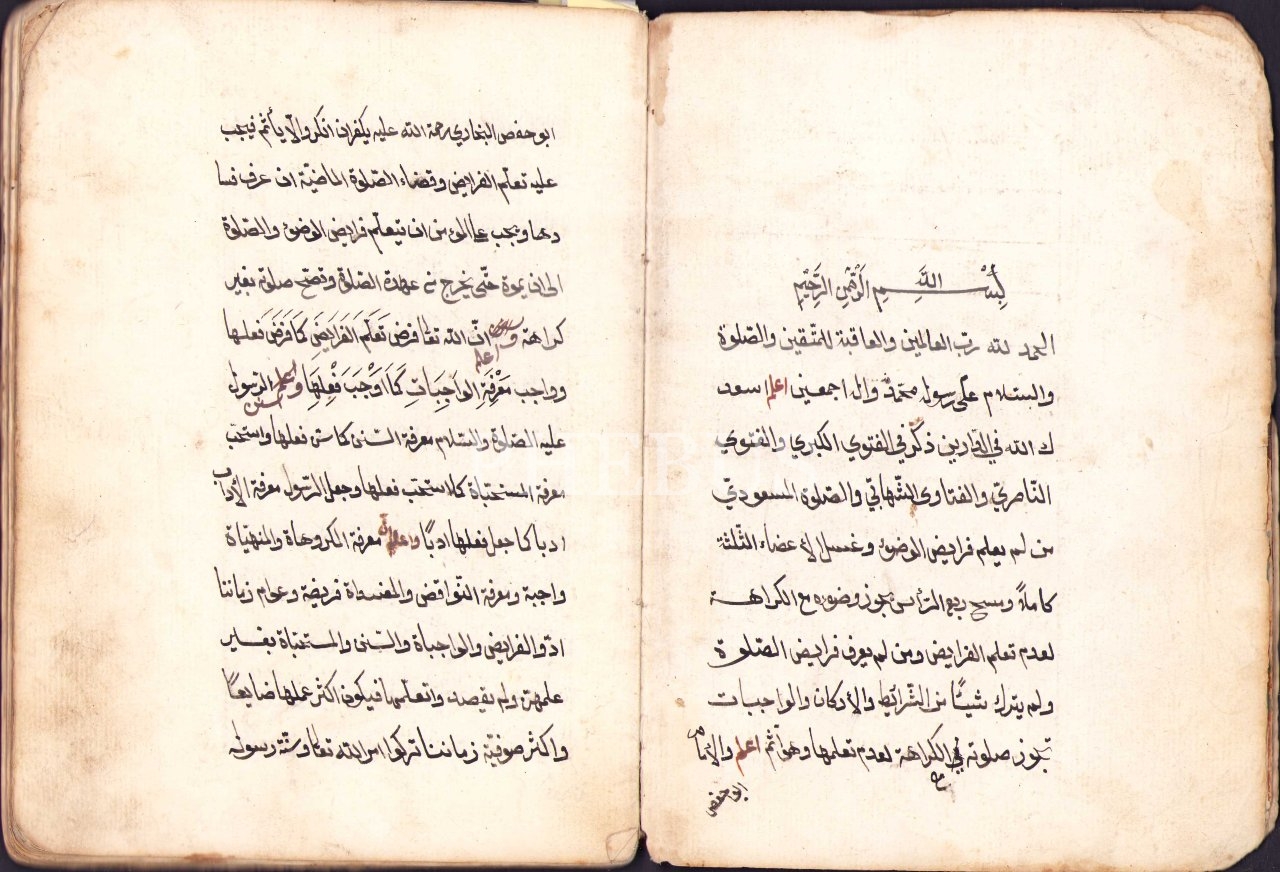 بِسْمِ اللَّهِ الرَّحْمٰنِ الرَّحِيْمِ
الحمد لله رب العالمين والعاقبة للمتقين والصلوة
والسلام على رسوله محمد واله اجمعين اعلم اسعد
ك الله في الدارين ذكر في الفتوي الكبري والفتوي
الناصري والفتاوى الشهابي والصلوة المسعودي
من لم يعلم فرايض الوضوء وغسل الاعضاء الثلثة
كاملاً ومسح ربع الرأس يجوز وضوءه مع الكراهة
لعدم تعلم الفرايض ومن لم يعرف فرايض الصلوة
ولم يترك شيئًا من الشرائط والأركان والواجبات
تجوز صلوته مع الكراهة لعدم تعلمها وهو آثم اعلم والامام
ابو حفص
ابو حفص البخاري رحمة الله عليه يكفر ان انكر والّا يأثم فيجب
عليه تعلم الفرايض وقضاء الصلوة الماضيّة ان عرف فسا
دها ويجب على المؤمن ان يتعلّم فرايض الوضوء والصلوة
الى ان يموة حتّى يخرج من عهدة الصلوة وتصحّ صلوته بغير
كراهة واعلم انّ الله تعا فرض تَعَلُّم الفَرَايِضَ كَمَا فَرَضَ فعلها
وواجب مَعْرِفَةِ الوَاجِبَاتِ كَمَا اَوْجَبَ فِعْلِهَا الرسول
عليه الصلوة والسلام معرفة السنن كما سن فعلها واستحب
معرفة المستحبّاة كما استحب فعلها وجعل الرسول معرفة الأداب
ادبا كما جعل فعلها ادبًا واعلم ان معرفة المكروهاة والمنهيّاة
واجبة ومعرفة النّواقض والمفسداة فريضة وعوام زماننا
ادّو الفرايض والواجباة والسنن والمستحبّاة بغير
علمهم ولم يقصدوا تعلّمها فيكون اكثر عملها ضايعًا
واكثر صوفيّة زماننا تركوا امر الله تعا وسنّة رسوله